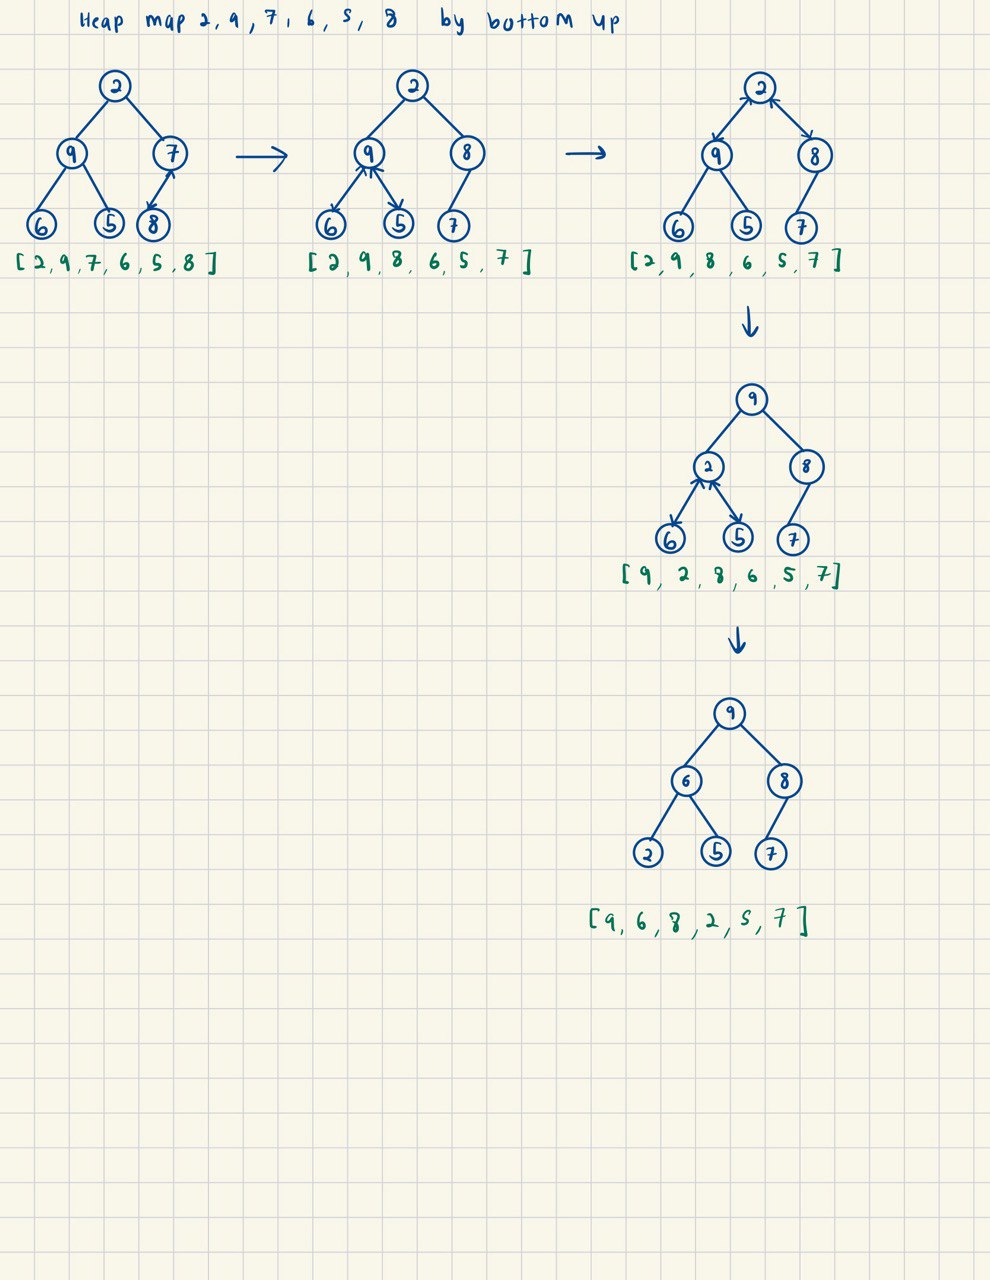 Heap map 2, 9, 7, 6, 5, 8 by bottom up
2 2 2
9 7 9 8 9 8
6 5 8 6 5 7 6 5 7
[2, 9, 7, 6, 5, 8] [2, 9, 8, 6, 5, 7] [2, 9, 8, 6, 5, 7]
9
2 8
6 5 7
[9, 2, 8, 6, 5, 7]
9
6 8
2 5 7
[9, 6, 8, 2, 5, 7]